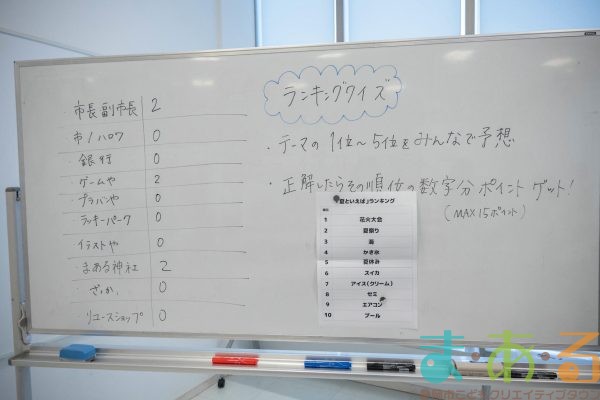 市長副市長 2
市ノハロワ 0
銀行 0
ゲームや 2
プラバンや 0
ラッキーパーク 0
イラストや 0
まある神社 2
ざっか 0
リユースショップ 0
ランキングクイズ
・テーマの1位～5位をみんなで予想
・正解したらその順位の数字分ポイントゲット!
(MAX15ポイント)
夏といえば」ランキング
1 花火大会
2 夏祭り
3 海
4 かき氷
5 夏休み
6 スイカ
7 アイス(クリーム)
8 セミ
9 エアコン
10 プール
ま・あ・る